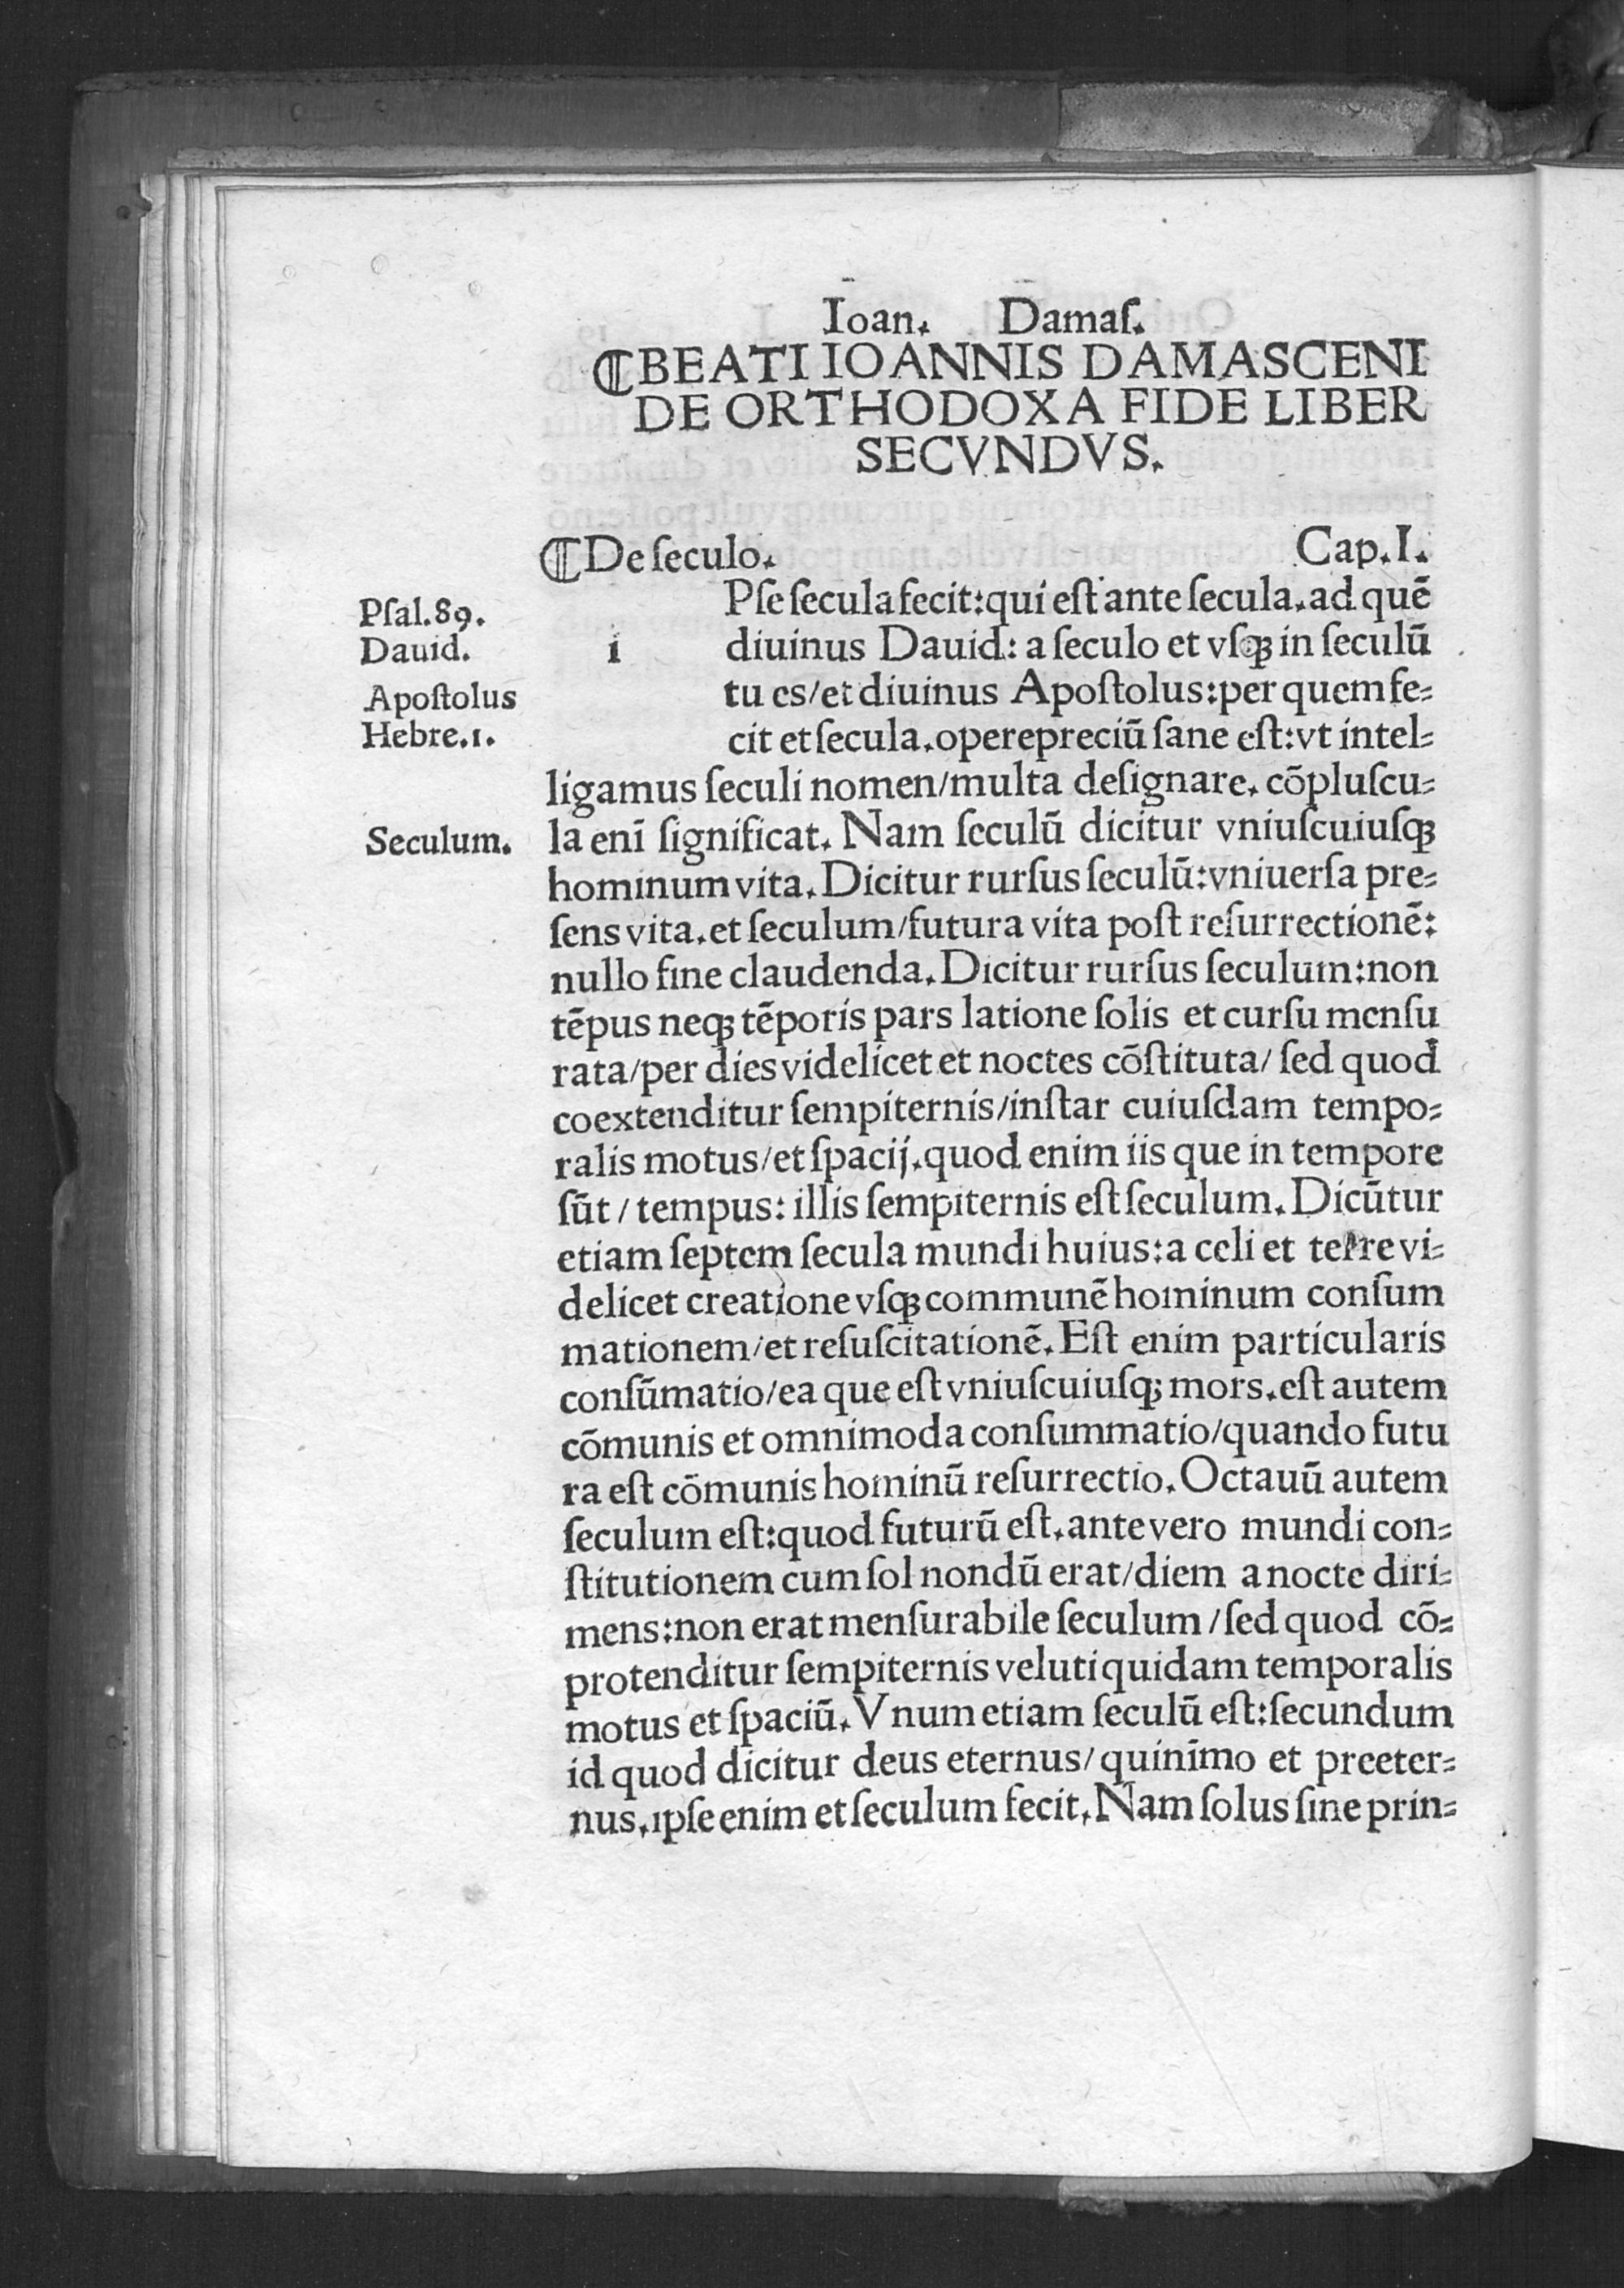 Ioan. Damaſ.
⸿BEATI IOANNIS DAMASCENI
DE ORTHODOXA FIDE LIBER
SECVNDVS.
⸿De ſeculo. Cap.I.
Pſal.89.
Dauid.
Apoſtolus
Hebre.1.
Seculum.
i
Pſe ſecula fecit:qui eſt ante ſecula.ad quē
diuinus Dauid: a ſeculo et vſqꝫ in ſeculū
tu es/et diuinus Apoſtolus:per quem fe⸗
cit et ſecula.operepreciū ſane eſt:vt intel⸗
ligamus ſeculi nomen/multa deſignare. cōpluſcu⸗
la enī ſignificat. Nam ſeculū dicitur vniuſcuiuſqꝫ
hominum vita.Dicitur rurſus ſeculū:vniuerſa pre⸗
ſens vita.et ſeculum/futura vita poſt reſurrectionē:
nullo fine claudenda.Dicitur rurſus ſeculum:non
tēpus neqꝫ tēporis pars latione ſolis et curſu menſu
rata/per dies videlicet et noctes cōſtituta/ ſed quod
coextenditur ſempiternis/inſtar cuiuſdam tempo⸗
ralis motus/et ſpacij.quod enim iis que in tempore
ſūt / tempus: illis ſempiternis eſt ſeculum.Dicūtur
etiam ſeptem ſecula mundi huius:a celi et terre vi⸗
delicet creatione vſqꝫ communē hominum conſum
mationem/et reſuſcitationē.Eſt enim particularis
conſūmatio/ea que eſt vniuſcuiuſqꝫ mors.eſt autem
cōmunis et omnimoda conſummatio/quando futu
ra eſt cōmunis hominū reſurrectio.Octauū autem
ſeculum eſt:quod futurū eſt.ante vero mundi con⸗
ſtitutionem cum ſol nondū erat/diem a nocte diri⸗
mens:non erat menſurabile ſeculum /ſed quod cō⸗
protenditur ſempiternis veluti quidam temporalis
motus et ſpaciū.Vnum etiam ſeculū eſt:ſecundum
id quod dicitur deus eternus/ quinīmo et preeter⸗
nus.ipſe enim et ſeculum fecit.Nam ſolus ſine prin⸗